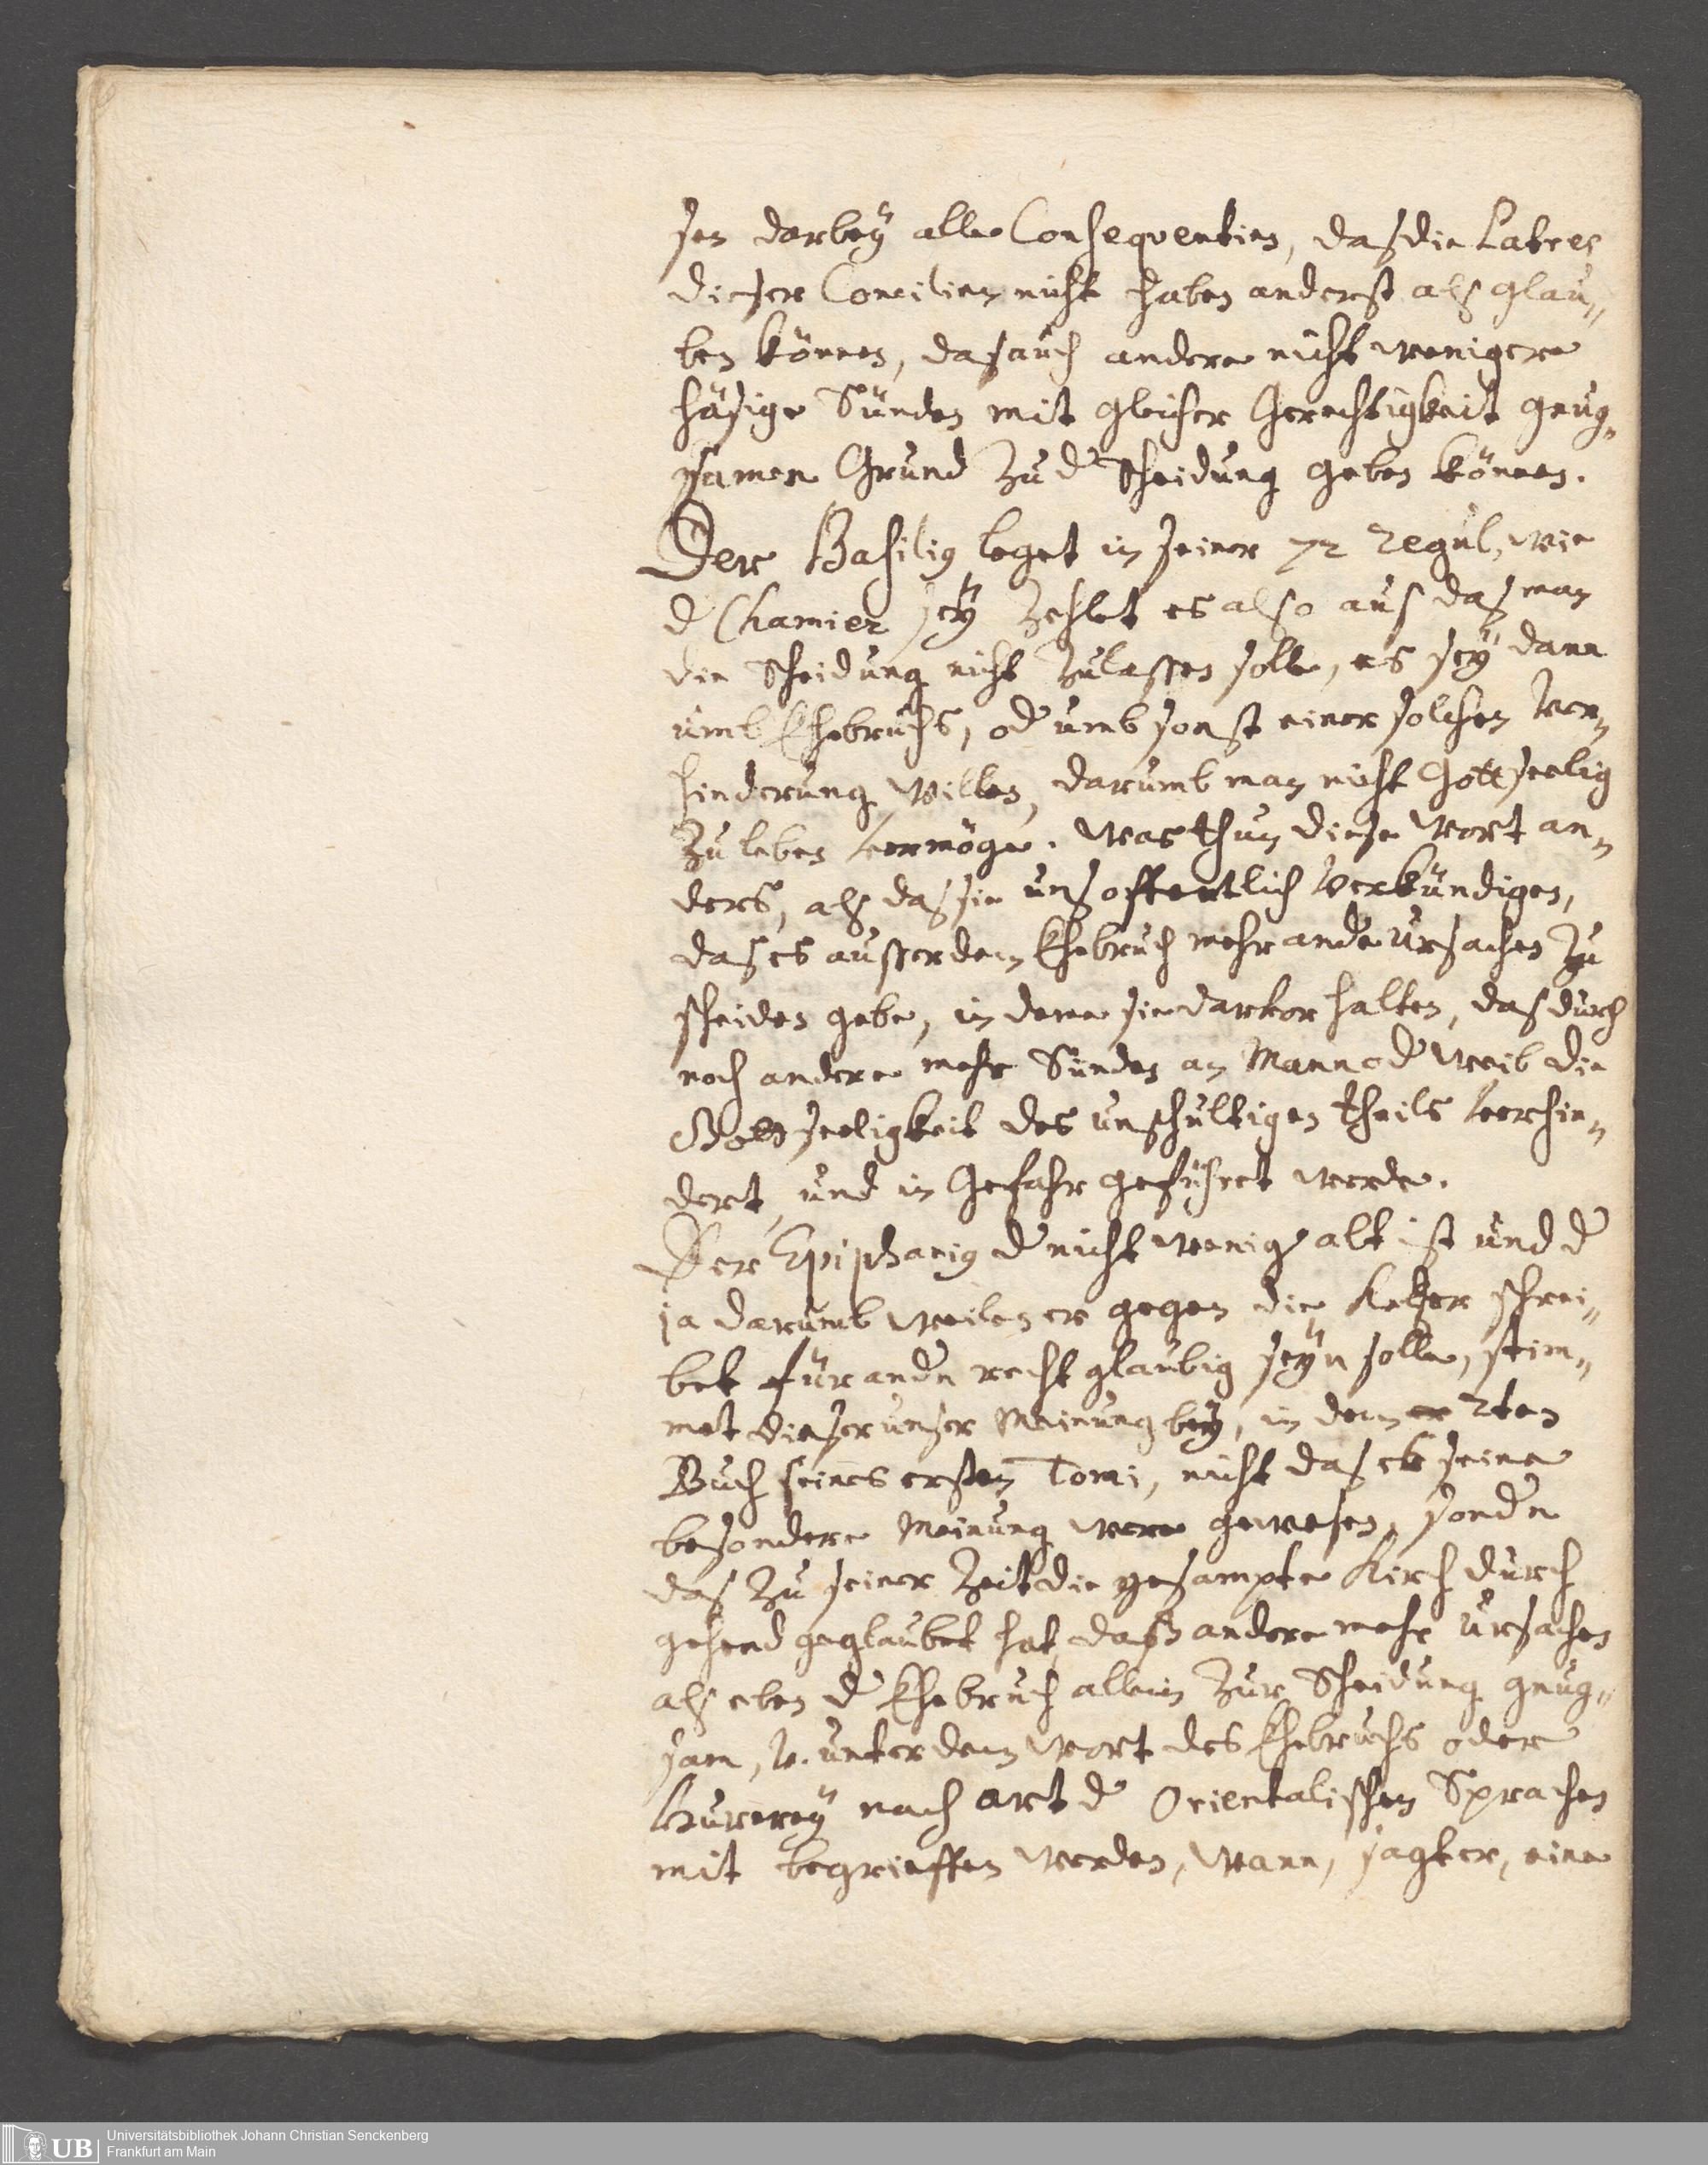 sen darbeÿ alle Consequentien, daß die Patres
dieser Concilien nicht haben anderst als glau„
ben können, daß auch andere nicht wenigere
häßige Sünden mit gleicher Gerechtigkeit gnug„
samen Grund zu d' Scheidung geben können.
Der Basilig leget in seiner 72 Regul, wie
d' Chamier seÿ zehlet es also aus daß man
die Scheidung nicht zulassen solle, es seÿ dann
umb Ehebruchs, od' umb sonst einer solchen Ver„
hinderung willen, darumb man nicht Gottseelig
zu leben vermöge. Was thun diese Wort an„
ders, als daß sie uns offentlich verkündigen,
daß es ausser dem Ehebruch mehr and'e Ursachen zu
scheiden gebe, in deme sie darvor halten, daß durch
noch andere mehr Sünden an Mann od' Weib die
Gottseeligkeit des unschultigen theils verhin„
dert, und in Gefahr geführet werde.
Der Epiphanig d' nicht wenig' alt ist und d'
ja darumb weilen er gegen die Ketzer schrei„
bet für and'n recht glaubig seÿn solle, stim„
met dieser unser Meinung beÿ, in dem 2ten
Buch seines ersten Tomi, nicht daß es seine
besondere Meinung were gewesen, sond'n
daß zu seiner Zeit die gesampte Kirch durch
gehend geglaubet hat, daß andere mehr Ursachen
als eben d' Ehebruch allein zur Scheidung gnug„
sam, v. unter dem Wort des Ehebruchs oder
Hurereÿ nach art d' Orientalischen Sprachen
mit begrieffen werden, Wann, sagt er, eine
UB
Universitätsbibliothek Johann Christian Senckenberg
Frankfurt am Main